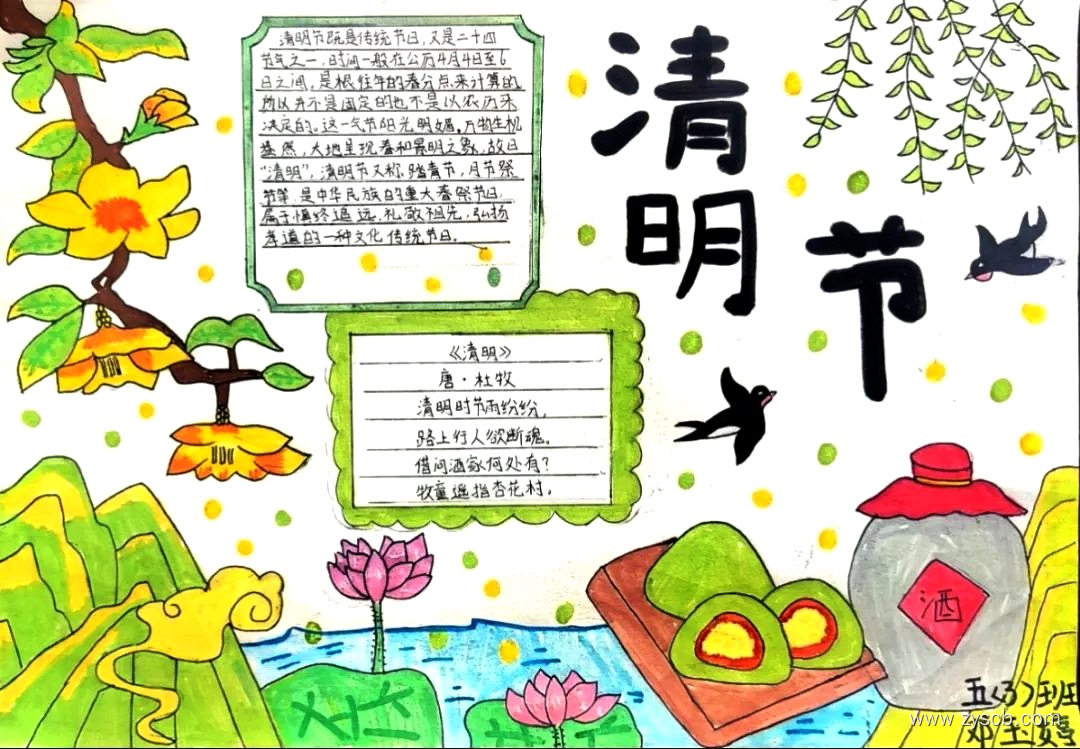 清明节
清明节既是传统节日，又是二十四
节气之一，时间一般在公历4月4日至6
日之间，是根住年的春分点来计算的
所以并不是固定的也不是以农历来
决定的。这一气节阳光明媚，万物生机
盎然，大地呈现春和景明之象，故曰
“清明”，清明节又称踏青节，月节祭
节等，是中华民族的重大春祭节日，
属于慎终追远、礼敬祖先、弘扬
孝道的一种文化传统节日。
《清明》
唐·杜牧
清明时节雨纷纷，
路上行人欲断魂。
借问酒家何处有？
牧童遥指杏花村。
酒
五(3)班
邓玉嫣
www.zysob.com